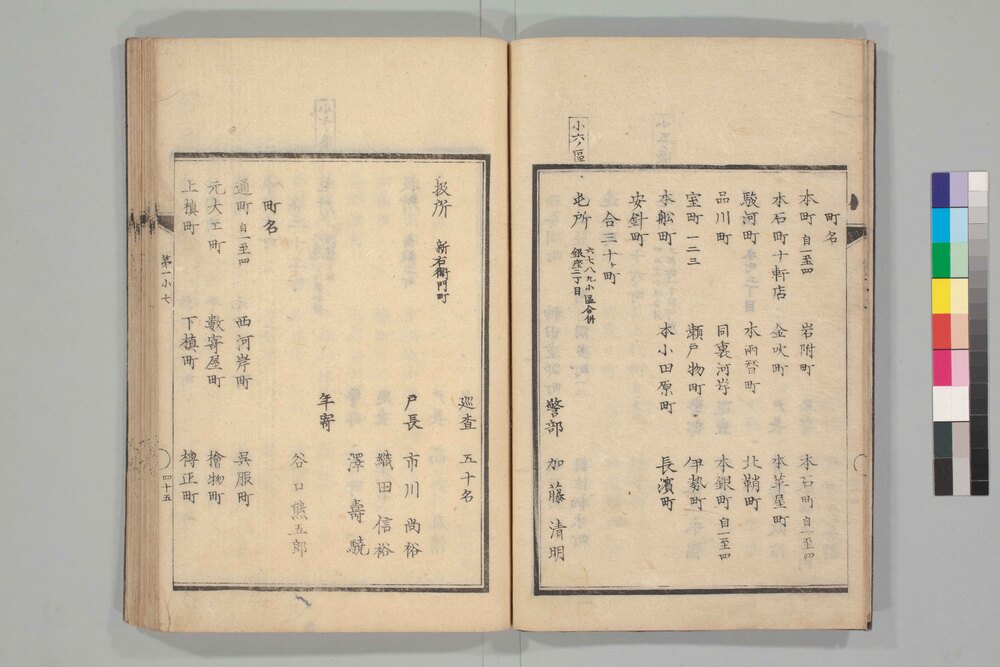 町名
本町自一至四 岩附町 本石町自一至四
本石町十軒店 金吹町 本革屋町
駿河町 本両替町 北鞘町
品川町 同裏河岸 本銀町自一至四
室町一二三 瀬戸物町 伊勢町
本舩町 本小田原町 長濱町
安針町
合三十ヶ町
小六ノ區
屯所 六七八九小區合併 銀座二丁目 警部 加藤清明
巡査 五十名
扱所 新右衛門町 戸長 市川尚裕
織田信裕
澤壽驍
年寄
谷口熊五郎
町名
通町自一至四 西河岸町 呉服町
元大工町 數寄屋町 檜物町
上槙町 下槙町 槫正町
第一小七
四十五